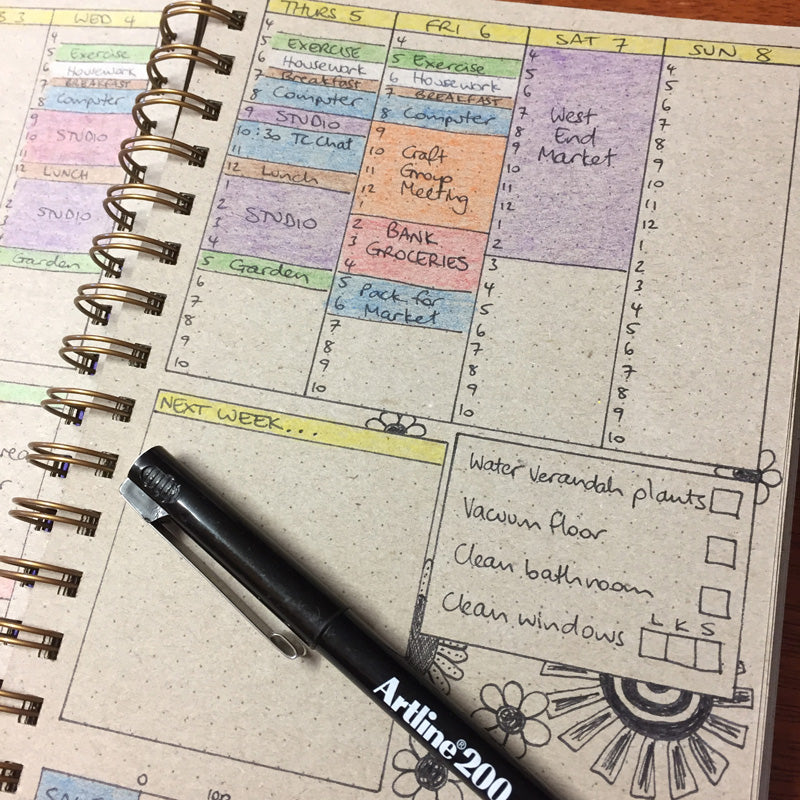 3
WED 4
Exercise
Housework
BREAKFAST
Computer
STUDIO
LUNCH
STUDIO
Garden
THURS 5
4
5 EXERCISE
6 Housework
7 Breakfast
8 Computer
9 STUDIO
10:30 TC Chat
11
12 Lunch
1
2 STUDIO
3
4
5 Garden
6
7
8
9
10
FRI 6
4
5 Exercise
6 Housework
7 BREAKFAST
8 Computer
9
10 Craft
11 Group
12 Meeting
1
2 BANK
3 GROCERIES
4
5 Pack for
6 Market
7
8
9
10
SAT 7
4
5
6
7 West
8 End
9 Market
10
11
12
1
2
3
4
5
6
7
8
9
10
SUN 8
4
5
6
7
8
9
10
11
12
1
2
3
4
5
6
7
8
9
10
NEXT WEEK...
Water verandah plants
Vacuum floor
Clean bathroom
Clean windows
L K S
Artline®200
0